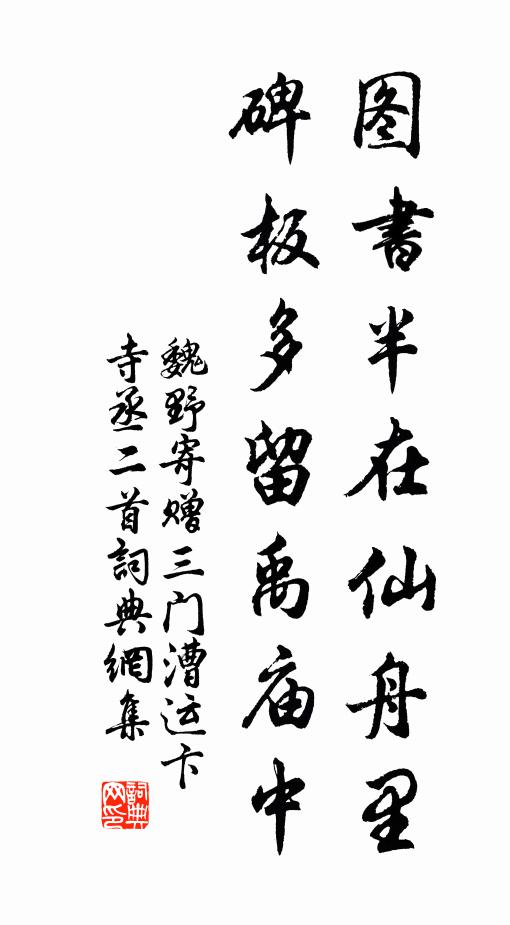 图書半在仙舟里
碑板多留禹庙中
魏野寄赠三门漕运卞
寺丞二首詞典網集
詞典
网印